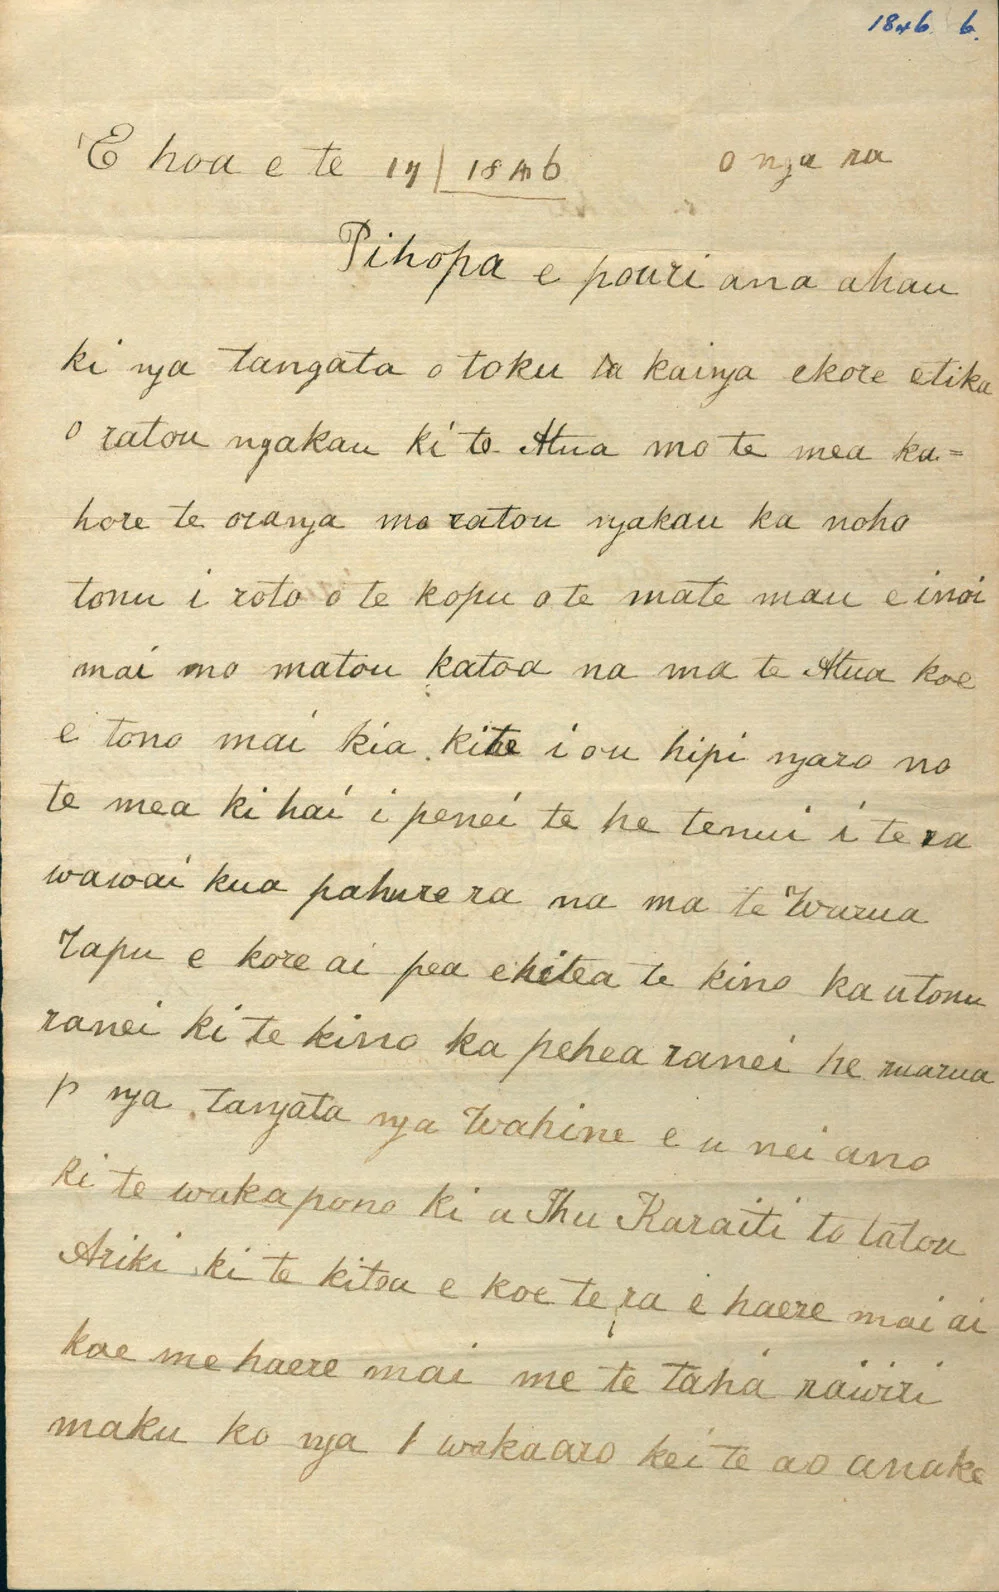 1846. 6.
E hoa e te 17 | 1846 o nga ra
Pihopa e pouri ana ahau
ki nga tangata o toku kainga ekore etika
o ratou ngakau ki te Atua mo te mea ka=
hore te oranga mo ratou ngakau ka noho
tonu i roto o te kopu o te mate mau e inoi
mai mo matou katoa na ma te Atua koe
e tono mai kia kite i ou hipi ngaro no
te mea ki hai i penei te he tenui i te ra
wawai kua pahure ra na ma te Warua
Tapu e kore ai pea ekitea te kino ka utonu
ranei ki te kino ka pehea ranei he ruarua
nga tangata nga Wahine e u nei ano
ki te wakapono ki a Ihu Karaiti to tatou
Ariki ki te kitea e koe te ra e haere mai ai
koe me haere mai me te taha raiwiri
maku ko nga wakaaro kei te ao anake